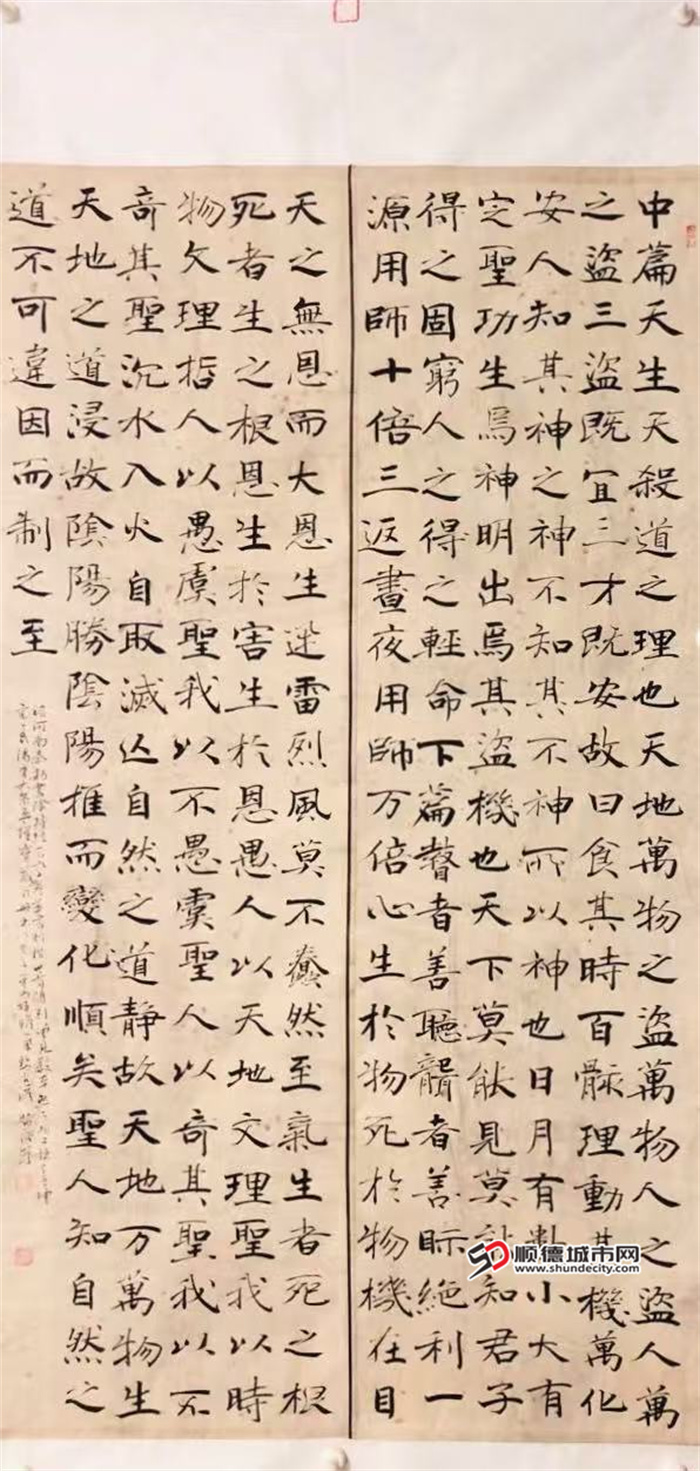 中篇天生天殺道之理也天地萬物之盜萬物人之盜人萬
之盜三盜既宜三才既安故曰食其時百骸理動其機萬化
安人知其神之神不知其不神所以神也日月有數小大有
定聖功生焉神明出焉其盜機也天下莫能見莫能知君子
得之固窮人之得之輕命下篇瞽者善聽聾者善眎絕利一
源用師十倍三返晝夜用師万倍心生於物死於物機在目
天之無恩而大恩生迅雷烈風莫不蠢然至氣生者死之根
死者生之根恩生於害生於恩愚人以天地文理聖我以時
物文理哲人以愚虞聖我以不愚虞聖人以奇其聖我以不
奇其聖沉水入火自取滅亡自然之道靜故天地万萬物生
天地之道浸故陰陽勝陰陽推而變化順矣聖人知自然之
道不可違因而制之至
顺德城市网
www.shundecity.com